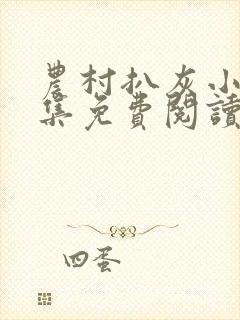 農村扒灰小
集免費閱讀
四蛋